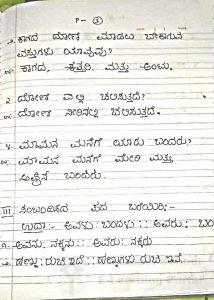 P- 3
೧. ಕಾಗದ ದೋಣಿ ಮಾಡಲು ಬೇಕಾಗುವ
ವಸ್ತುಗಳು ಯಾವುವು?
ಉ. ಕಾಗದ, ಕತ್ತರಿ, ಮತ್ತು ಅಂಟು.
೨. ದೋಣಿ ಎಲ್ಲಿ ಚಲಿಸುತ್ತದೆ?
ಉ. ದೋಣಿ ನೀರಿನಲ್ಲಿ ಚಲಿಸುತ್ತದೆ.
೪. ಮಾಮನ ಮನೆಗೆ ಯಾರು ಬಂದರು?
ಉ. ಮಾಮನ ಮನೆಗೆ ಮೇರಿ ಮತ್ತು
ಬಂದರು.
III ಸಂಬಂಧಿಸಿದ ಪದ ಬರೆಯಿರಿ:-
ಉದಾ:- ಅವಳು: ಬಂದಳು :: ಅವರು: ಬಂ
೧. ಅವನು: ನಕ್ಕನು :: ಅವರು: ನಕ್ಕರು
೨. ಹಣ್ಣು: ರುಚಿ ಇದೆ :: ಹಣ್ಣುಗಳು ರುಚಿ ಇವೆ